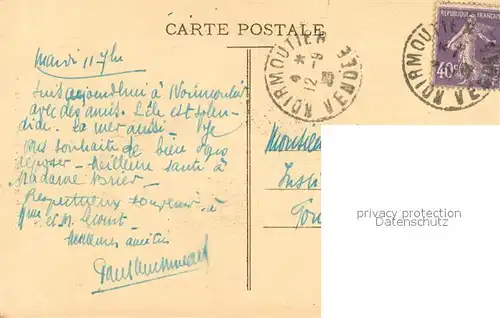 CARTE POSTALE
NOIRMOUTIER
VENDÉE
12-9
RÉPUBLIQUE FRANÇAISE
40c
NOIRMOUTIER
VENDÉE
Mardi 11 7bre
Suis aujourdhui à Noirmoutier
avec des amis. L'île est splen-
dide. La mer aussi - Je
vous souhaite de bien vous
reposer - Meilleure santé à
Madame
Respectueux souvenir à
Mme et M.
Meilleures amitiés
Monsieur
privacy protection
Datenschutz